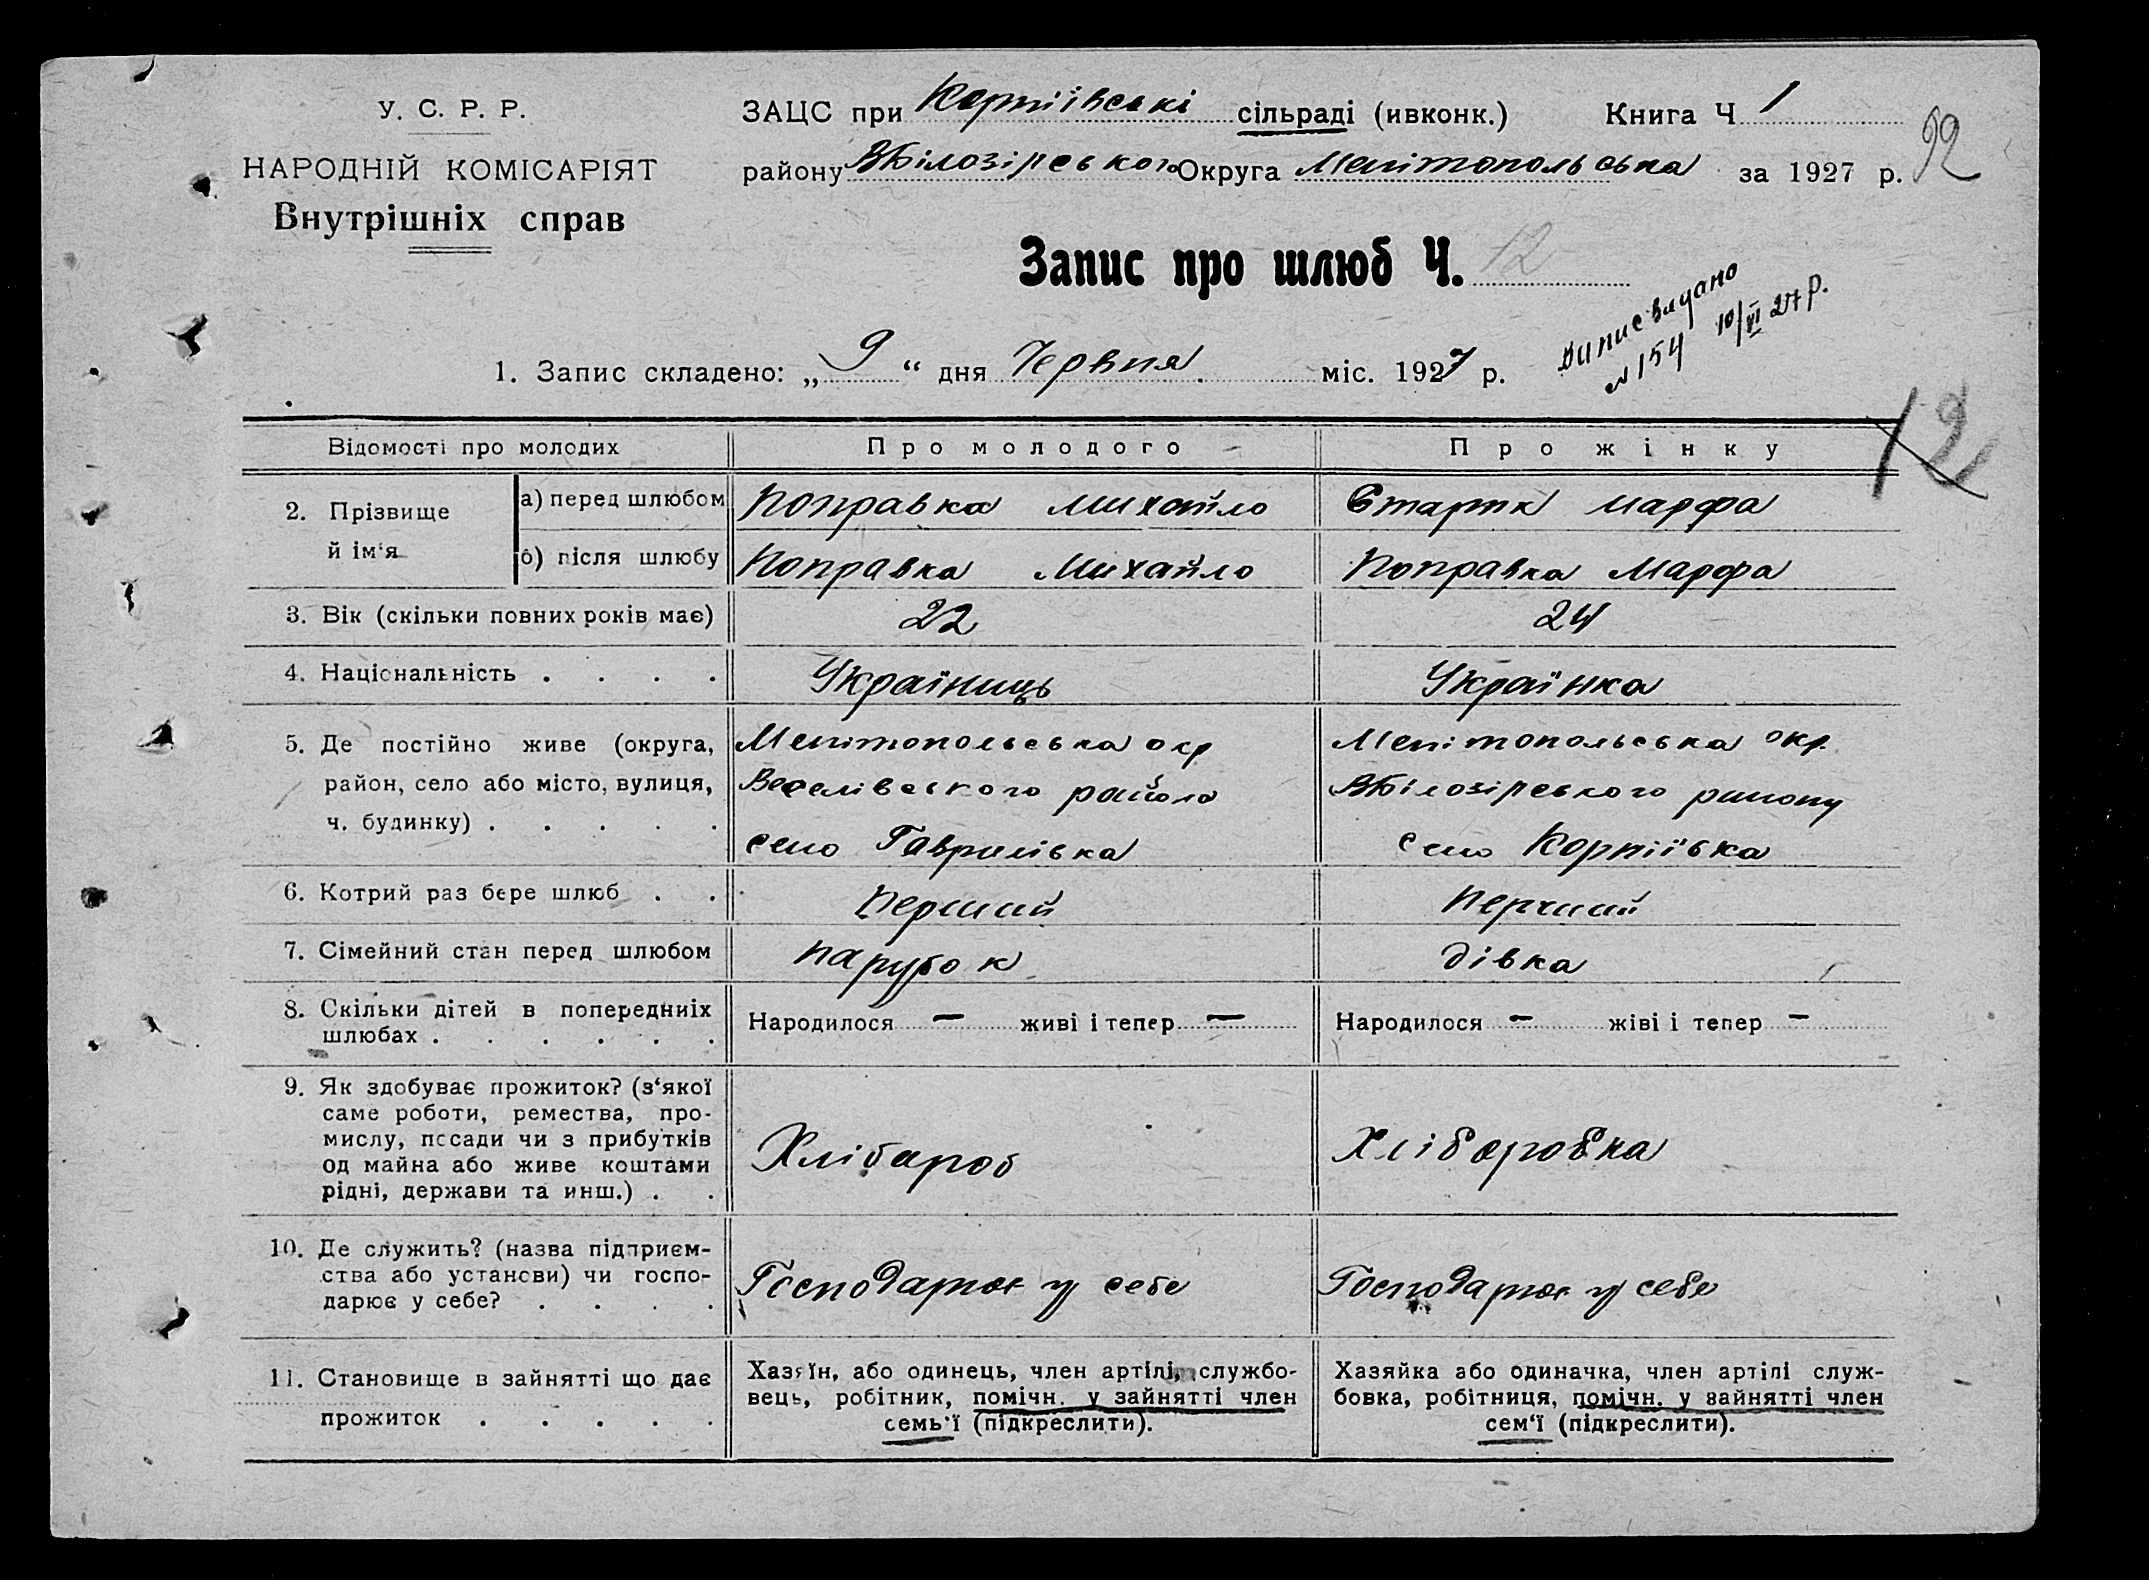 У. С. Р. Р.
НАРОДНІЙ КОМІСАРІЯТ
Внутрішніх справ
ЗАЦС при Корніївські сільраді (ивконк.) Книга Ч 1
району ВБілозірського Округа Мелітопольська за 1927 р.
92
Запис про шлюб Ч. 12
Випис видано
№ 154 10/VI 27 р.
1. Запис складено: „ 9 “ дня Червня міс. 1927 р.
12
Відомості про молодих Про молодого Про жінку
2. Прізвище й ім‘я
а) перед шлюбом Поправка Михайло Старик Марфа
б) після шлюбу Поправка Михайло Поправка Марфа
3. Вік (скільки повних років має) 22 24
4. Національність . . . . Україниць Українка
5. Де постійно живе (округа, Мелітопольська окр Мелітопольська окр.
район, село або місто, вулиця, Веселівського району ВБілозірського району
ч. будинку) . . . . . село Гаврилівка село Корніївка
6. Котрий раз бере шлюб . . Перший Перший
7. Сімейний стан перед шлюбом парубок дівка
8. Скільки дітей в попередниіх Народилося — живі і тепер — Народилося — жіві і тепер —
шлюбах . . . . . .
9. Як здобуває прожиток? (з‘якої
саме роботи, ремества, про-
мислу, посади чи з прибутків Хлібароб Хліборобка
од майна або живе коштами
рідні, держави та инш.) . .
10. Де служить? (назва підприєм-
ства або установи) чи госпо- Господарює у себе Господарює у себе
дарює у себе? . . . .
11. Становище в зайнятті що дає Хазяїн, або одинець, член артілі, службо- Хазяйка або одиначка, член артілі служ-
вець, робітник, помічн. у зайнятті член бовка, робітниця, помічн. у зайнятті член
прожиток . . . . . семь‘ї (підкреслити). сем‘ї (підкреслити).